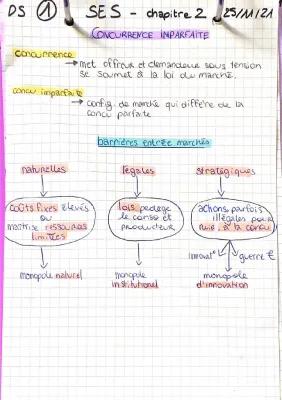 DS ① SES - chapitre 2 25/11/21
CONCURRENCE IMPARFAITE
concurrence
→ met offreur et demandeur sous tension
se soumet à la loi du marché.
concu imparfaite
→ config. de marché qui diffère de la
concu parfaite
barrières entrée marchés
naturelles légales stratégiques
coûts fixes élevés
ou
maîtrise ressources
limitées
lois protège
le conso et
producteur
actions parfois
illégales pour
nuire à la concu
innovat° guerre €
monopole naturel
monopole
institutionnel
monopole
d'innovation